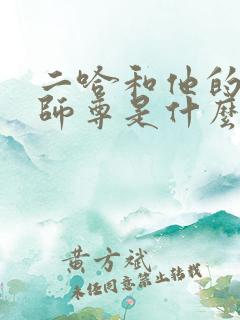 二哈和他的
師尊是什麼
黄方斌
未经同意禁止转载